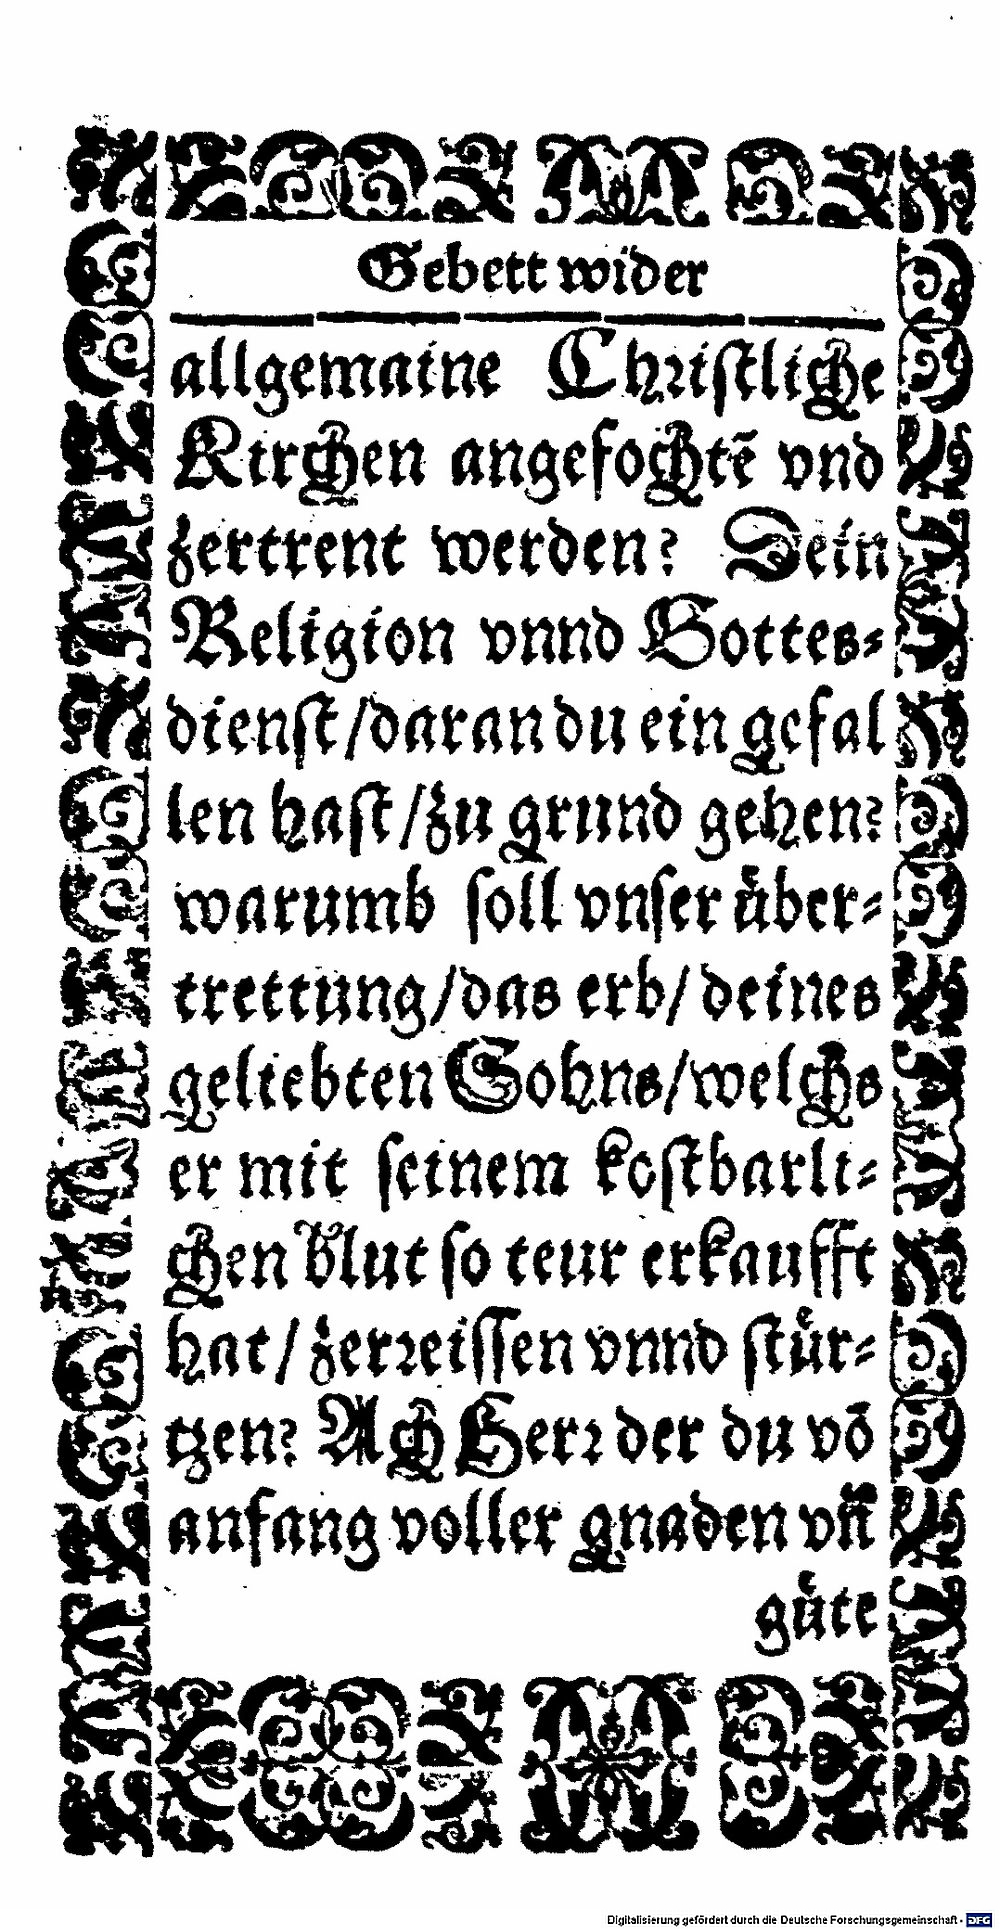 Gebett wider
allgemaine Christliche
Kirchen angefochtē vnd
zertrent werden? Dein
Religion vnnd Gottes⸗
dienst/daran du ein gefal
len hast/zu grund gehen?
warumb soll vnser uͤber⸗
trettung/das erb/deines
geliebten Sohns/welchs
er mit seinem kostbarli⸗
chen blut so teur erkaufft
hat/zerꝛeissen vnnd stuͤr⸗
tzen? Ach Herꝛ der du vō
anfang voller gnaden vn̄
guͤte
Digitalisierung gefördert durch die Deutsche Forschungsgemeinschaft - DFG